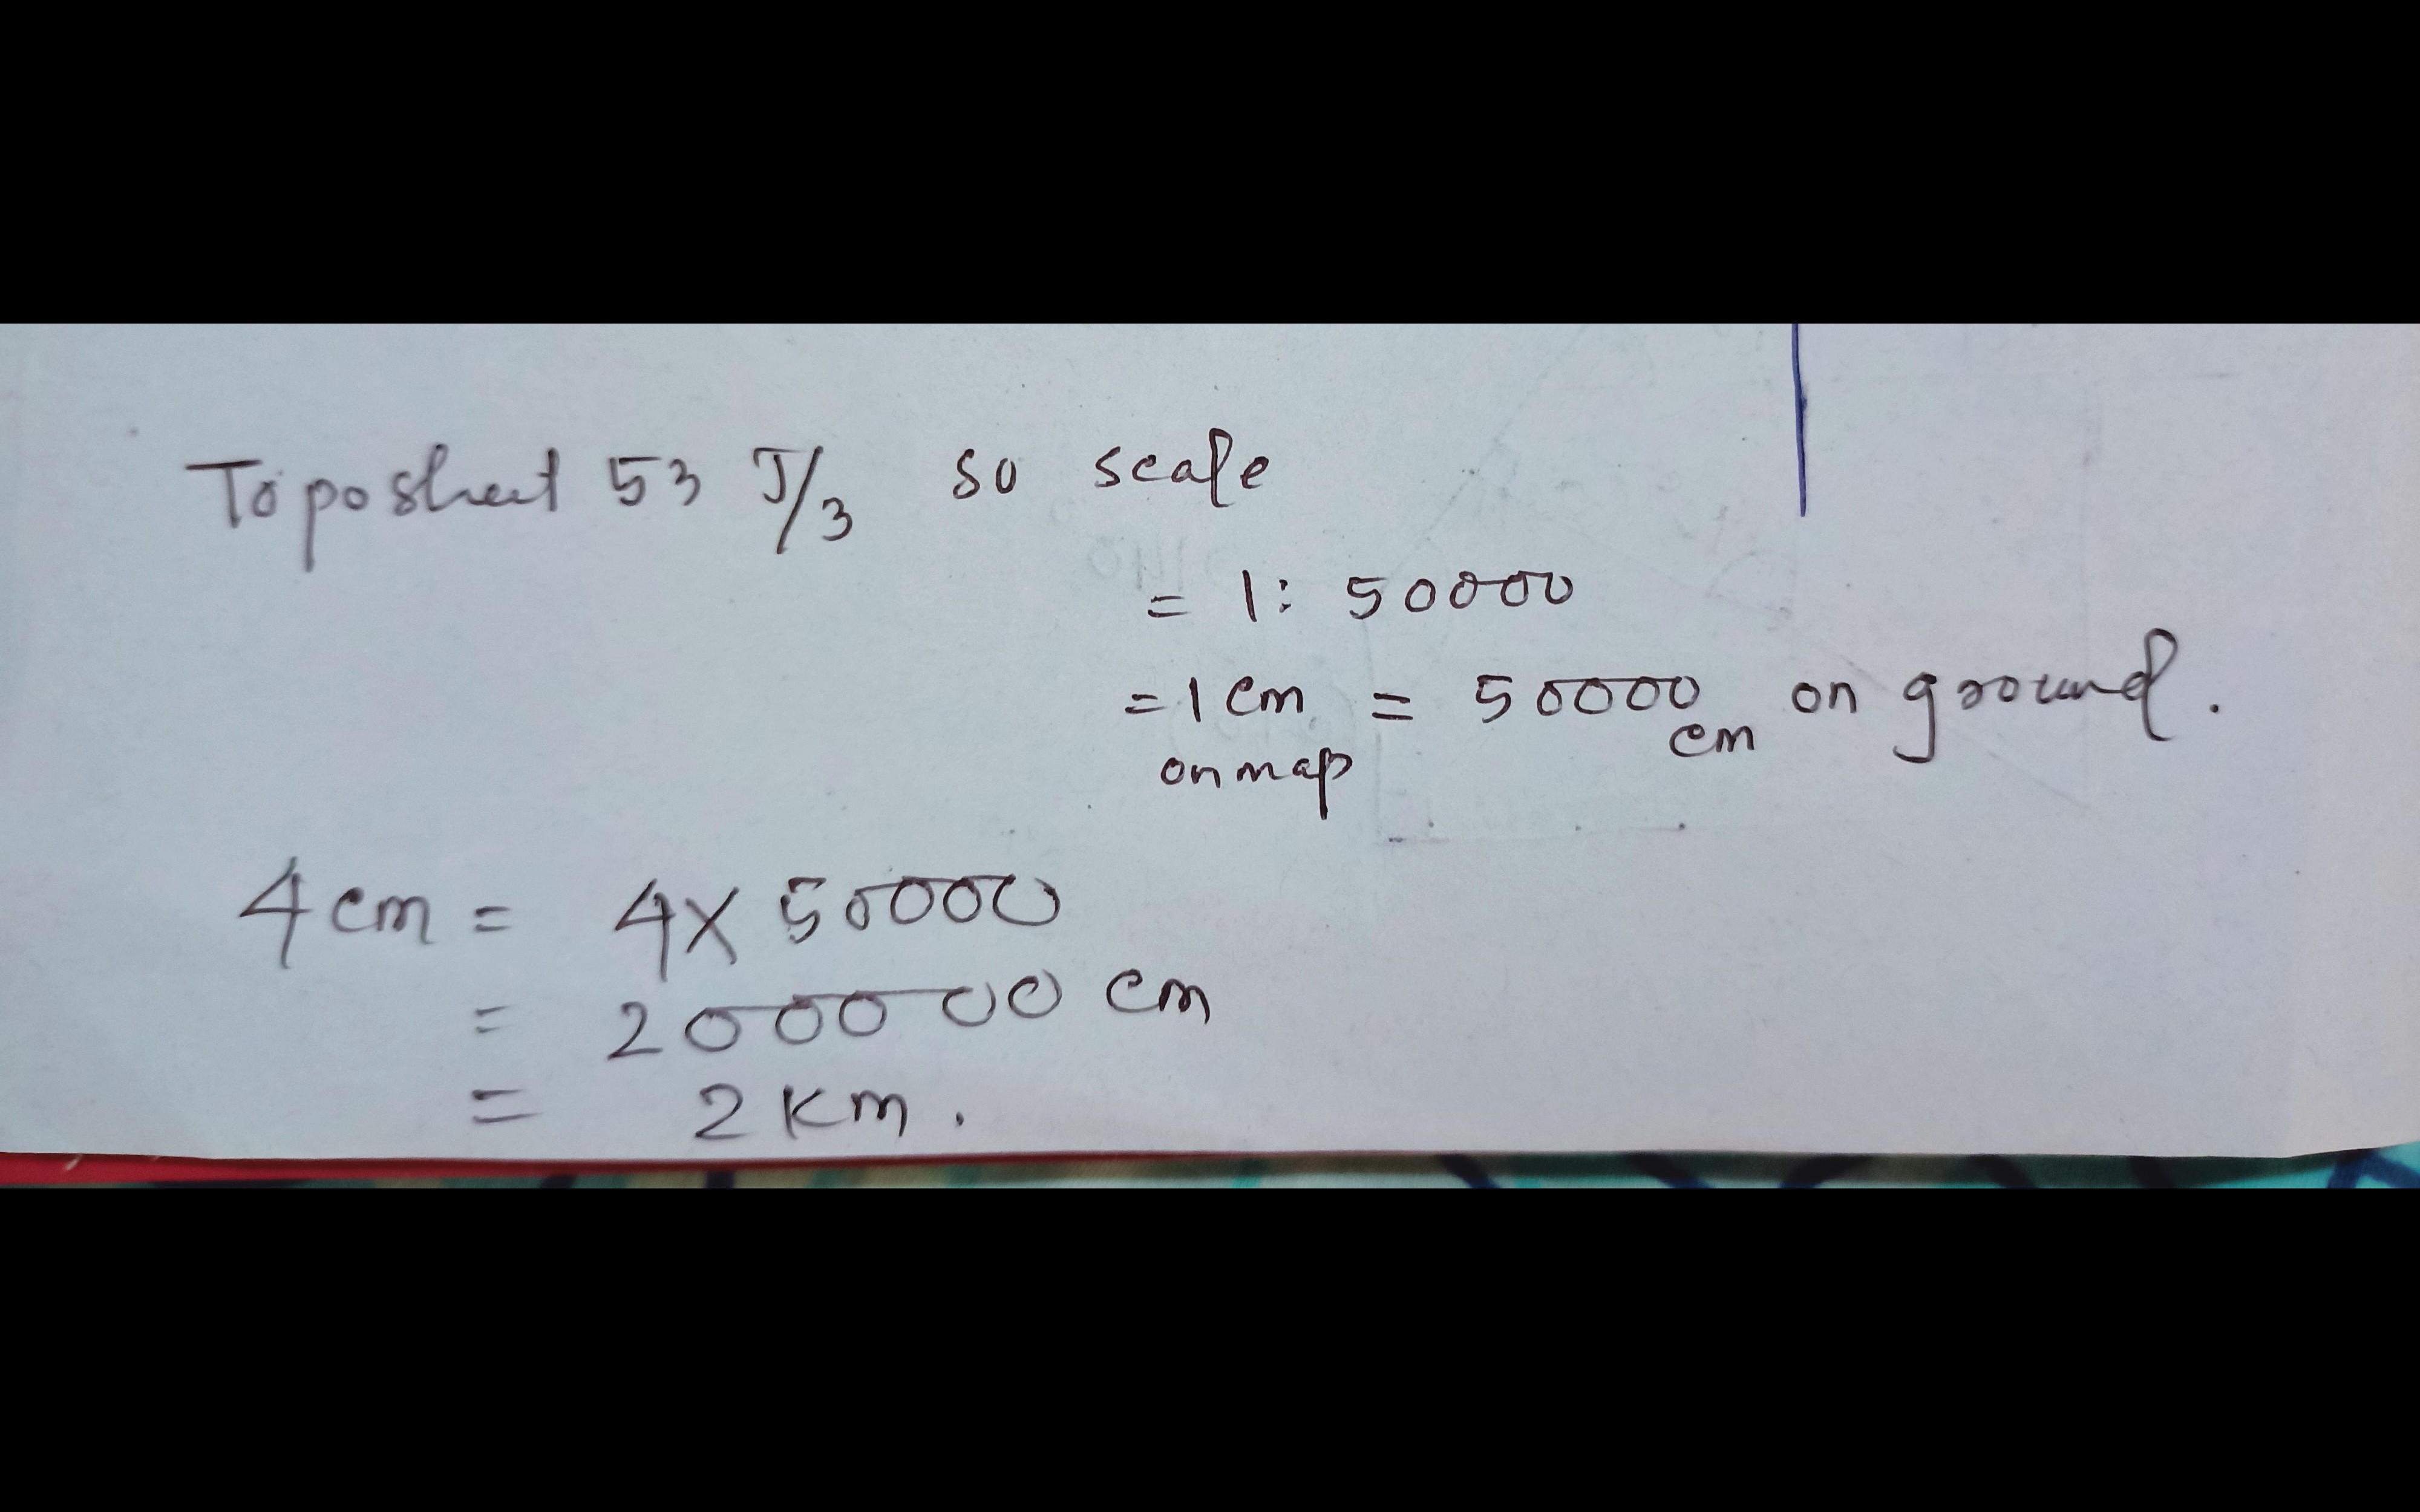 Toposheet 53 J/3 so scale
= 1: 50000
= 1 cm = 50000 cm on ground.
on map
4 cm = 4 x 50000
= 200000 cm
= 2 Km.